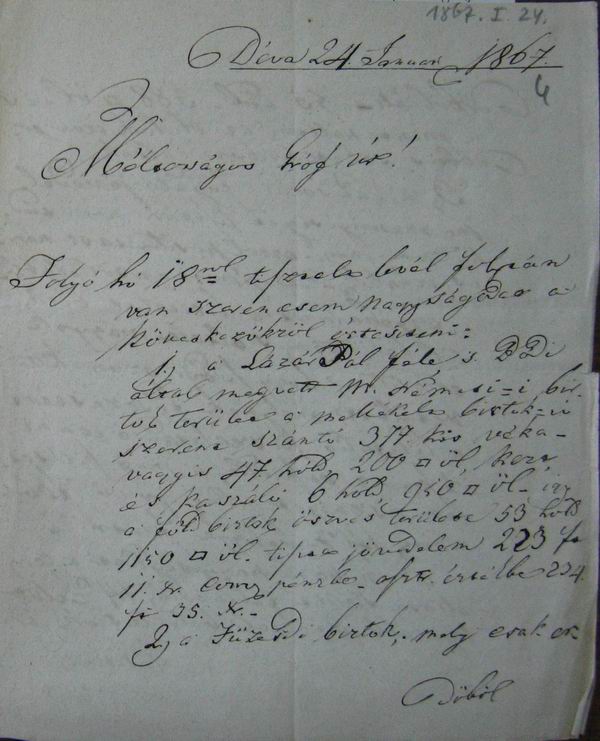 1867. I. 24.
Déva 24 Januar 1867.
4
Méltóságos Gróf úr!
Folyó hó 18ról tiszteletelt levél folytán
van szerencsém Nagyságodat a
következőkről értesiteni:
1., a Lázár Pál féle s
által megvett M. Némesi-i bir-
tok területe a mellékelt birtok-i
szerént szántó 377. kis véka-
vagyis 47. hold, 200 □ öl, kert
és Kaszáló 6 hold, 950 □ öl - igy
a föld birtok öszves területe 53 hold
1150 □ öl. tiszta jövedelem 223 f
11. Xr. conv pénzbe - astr. értékbe 234.
fr 35. Xr. -
2, a Füzesdi birtok, mely csak er-
dőből